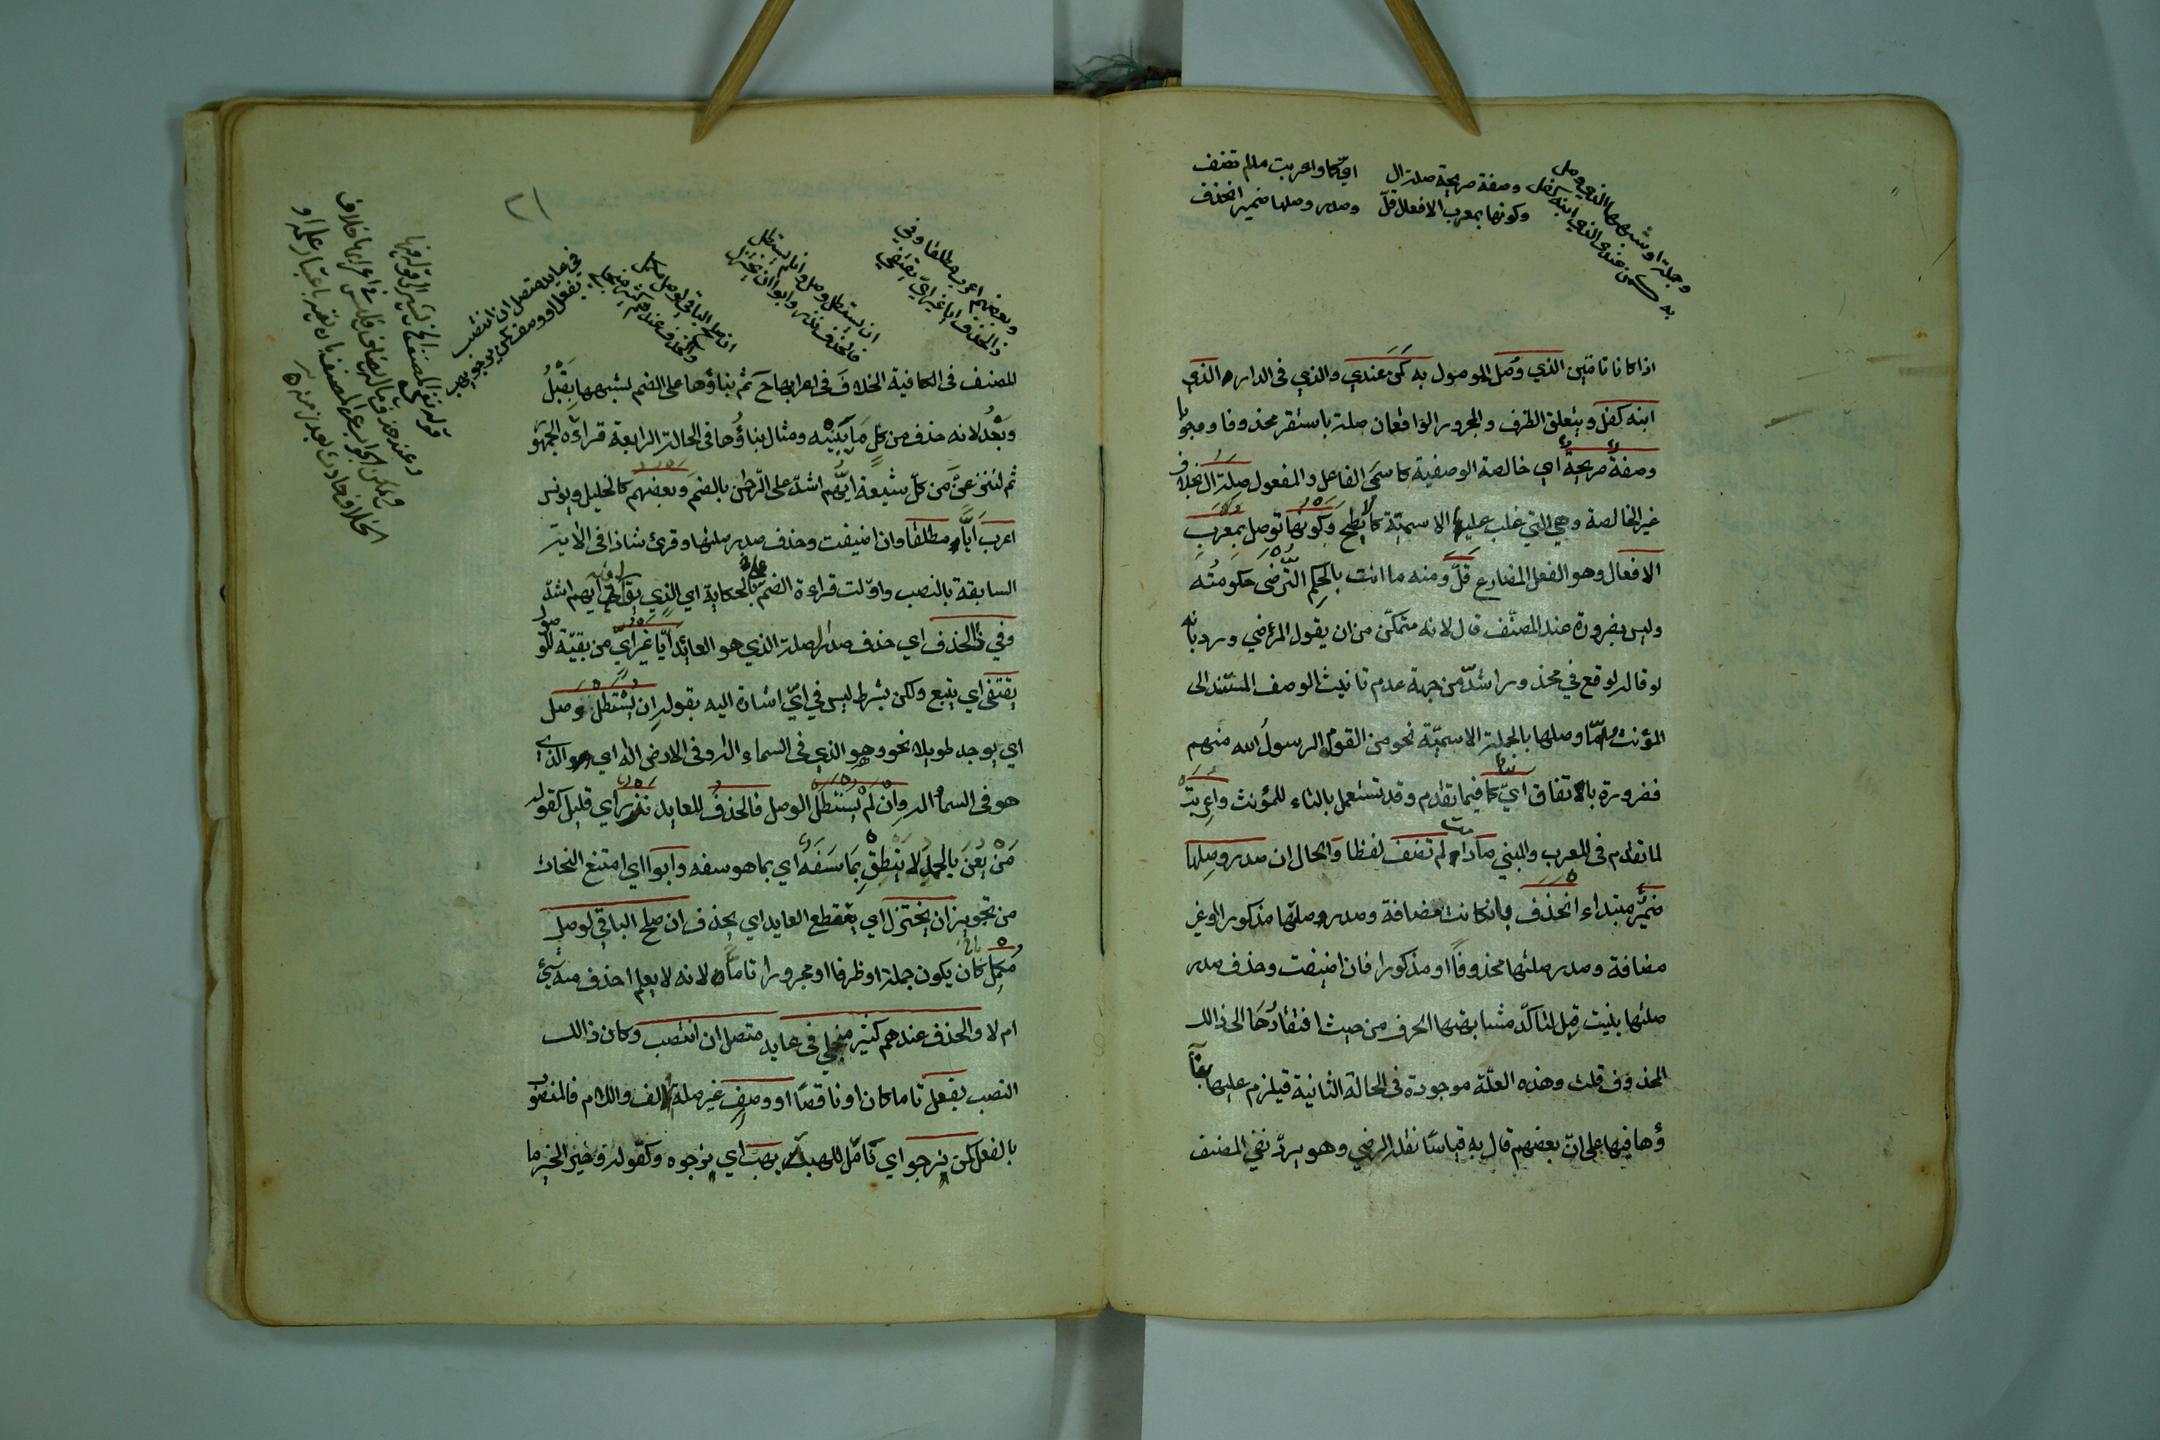 وجملة او شبهها الذي وصل
به كمن عندي الذي ابنه كفل
وصفة صريحة صلة ال
وكونها بمعرب الافعال قلّ
ايّ كما واعربت مالم تضف
وصدر وصلها ضمير انحذف
اذا كانا تامّين الذي وُصل الموصول به كَمَن عندي والذي في الدار الذي
ابنه كفل ويتعلق الظرف والمجرور الواقعان صلة باستقر محذوفا وجوبا
وصفة صريحة اي خالصة الوصفية كاسمَي الفاعل والمفعول صلة ال بخلاف
غير الخالصة وهي التي غلب عليها الاسمية كالابطح وكونها توصل بمعرب
الافعال وهو الفعل المضارع قلّ ومنه ما انت بالحكم التُرضى حكومتُه
وليس بضرورة عند المصنّف قال لانه متمكّن من ان يقول المرضي وردّ بانّه
لو قاله لوقع في محذور اشدّ من جهة عدم تانيث الوصف المستند الى
المؤنث وامّا وصلها بالجملة الاسميّة نحو من القوم الرسولُ الله منهم
فضرورة بالاتفاق ايّ كما فيما تقدم وقد تستعمل بالتاء للمؤنث واعربت
لما تقدم في المعرب والمبني مادام لم تضف لفظا والحال ان صدر وصلها
ضميرٌ مبتداء انحذف بان كانت مضافة وصدر صلتها مذكورا وغير
مضافة وصدر صلتها محذوفاً او مذكورا فان اضيفت وحذف صدر
صلتها بنيت قيل لتاكّد مشابهتها الحرف من حيث افتقارُها الى ذالك
المحذوف قلت وهذه العلّة موجودة في الحالة الثانية فيلزم عليها بنا
ؤها فيها على انّ بعضهم قال به قياسًا نقله الرضي وهو يردّ نفي المصنف
٢١
وبعضهم اعرب مطلقا وفي
ذا الحذف ايا غير ايّ يقتفي
ان يستطل وصل وان لم يستطل
فالحذف نزر وابوا ان يختزل
ان صلح الباقي لوصل مكمل
والحذف عندهم كثير منجلي
في عايد متصل ان انتصب
بفعل او وصف كمن نرجو يهب
للمصنف في الكافية الخلافَ في اعرابها ح ثم بناؤها على الضم لشبهها بقَبْلُ
وبَعْدُ لانه حذف من كلٍ مَا يُبَيّنُه ومثال بناؤها في الحالة الرابعة قراءة الجمهو
ثم لننزعنَّ من كلّ شيعة ايُّهم اشدّ على الرّحمن بالضم وبعضهم كالخليل ويونس
اعرب ايًّا مطلقا وان اضيفت وحذف صدر صلتها وقرئ شاذا في الآية
السابقة بالنصب واوّلت قراءة الضمّ على الحكاية اي الذي يقال فيه ايّهم اشدّ
وفي ذا الحذف اي حذف صدر الصلة الذي هو العائد ايّا غير ايّ من بقيّة الموصول
يقتفي اي يتبع ولكن بشرط ليس في ايّ اشارة اليه بقوله ان يُستطل وصل
اي يوجد طويلا نحو وهو الذي في السماء اله وفي الارض اله اي هو الذي
هو في السماء اله وان لم يُستطل الوصل فالحذف للعايد نزر اي قليل كقوله
مَنْ يُعْنَ بالحمدِ لا يَنْطِقْ بمَا سَفَهٌ اي بما هو سفه وابوا اي امتنع النحاة
من تجويز ان يختزل اي يقطع العايد اي يحذف ان صلح الباقي لوصل
مُكمِل كان يكون جملة او ظرفا او مجرورا تامّا لانه لا يعلم احذف منه شئ
ام لا والحذف عندهم كثير منجلي في عايد متصل ان انتصب وكان ذالك
النصب بفعل تاما كان او ناقصًا او وصفٍ غير صلة الالف واللام فالمنصوب
بالفعل كمن نرجو اي نامّل للهبة يهب اي نرجوه وكقوله وخير الخير ما